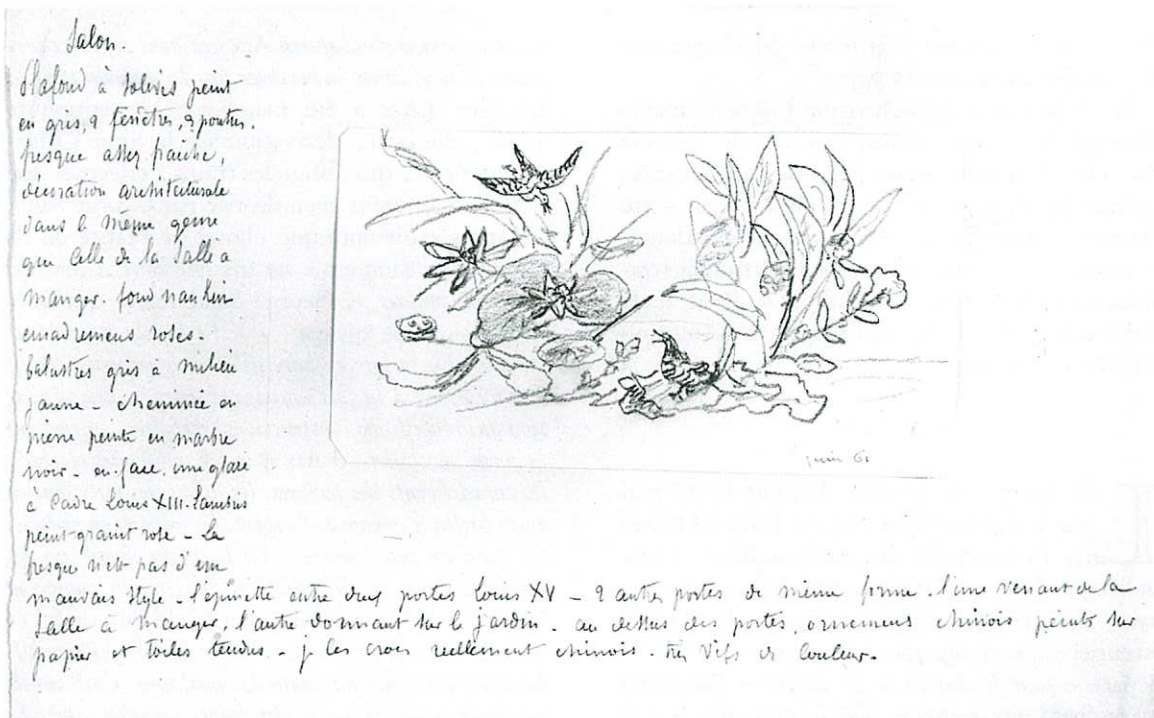 Salon.
Plafond à solives peint
en gris, 2 fenêtres, 2 portes.
fresque assez fraîche,
décoration architecturale
dans le même genre
que celle de la Salle à
manger. fond nankin
encadremens roses.
balustres gris à milieu
jaune - cheminée en
pierre peinte en marbre
noir - en face, une glace
à cadre Louis XIII. Lambris
peint granit rose - La
fresque n'est pas d'un
mauvais style - l'épinette entre deux portes Louis XV - 2 autres portes de même forme. l'une venant de la
Salle à manger, l'autre donnant sur le jardin - au dessus des portes, ornemens chinois peints sur
papier et toiles tendus - je les crois réellement chinois - très vifs de couleur.
juin 61